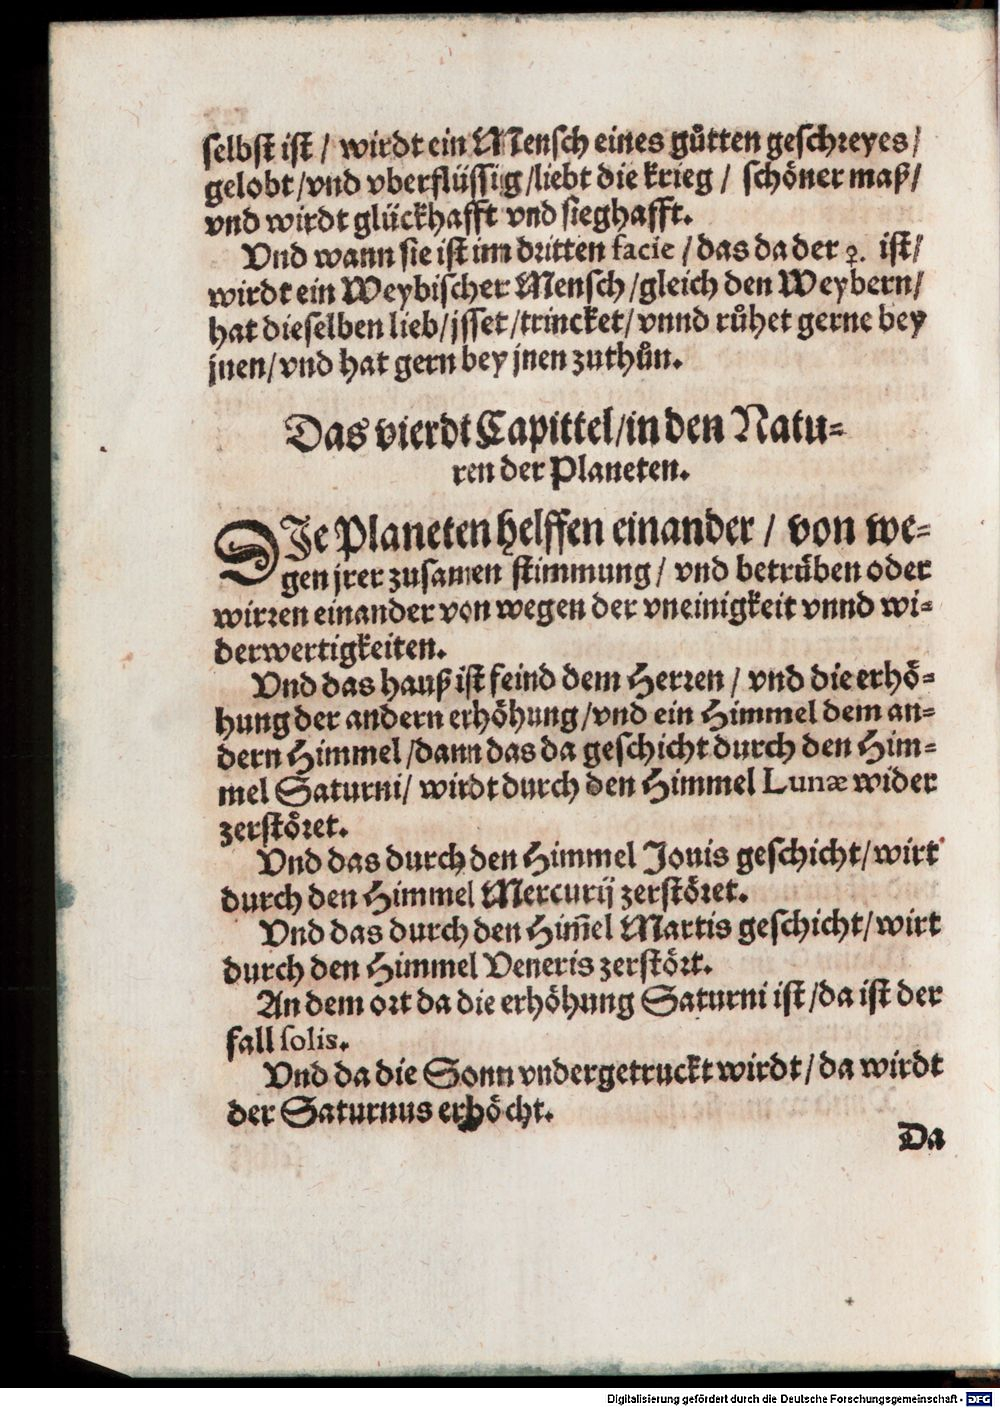 selbst ist / wirdt ein Mensch eines gůtten geschreyes /
gelobt / vnd vberflüssig / liebt die krieg / schöner maß /
vnd wirdt glückhafft vnd sieghafft.
Vnd wann sie ist im dritten facie / das da der ♀. ist /
wirdt ein Weybischer Mensch / gleich den Weybern /
hat dieselben lieb / jsset / trincket / vnnd růhet gerne bey
jnen / vnd hat gern bey jnen zuthůn.
Das vierdt Capittel / in den Natu=
ren der Planeten.
DIe Planeten helffen einander / von we=
gen jrer zusamen stimmung / vnd betrüben oder
wirren einander von wegen der vneinigkeit vnnd wi=
derwertigkeiten.
Vnd das hauß ist feind dem Herren / vnd die erhö=
hung der andern erhöhung / vnd ein Himmel dem an=
dern Himmel / dann das da geschicht durch den Him=
mel Saturni / wirdt durch den Himmel Lunæ wider
zerstöret.
Vnd das durch den Himmel Jouis geschicht / wirt
durch den Himmel Mercurij zerstöret.
Vnd das durch den Him̃el Martis geschicht / wirt
durch den Himmel Veneris zerstört.
An dem ort da die erhöhung Saturni ist / da ist der
fall solis.
Vnd da die Sonn vndergetruckt wirdt / da wirdt
der Saturnus erhöcht.
Da
Digitalisierung gefördert durch die Deutsche Forschungsgemeinschaft - DFG